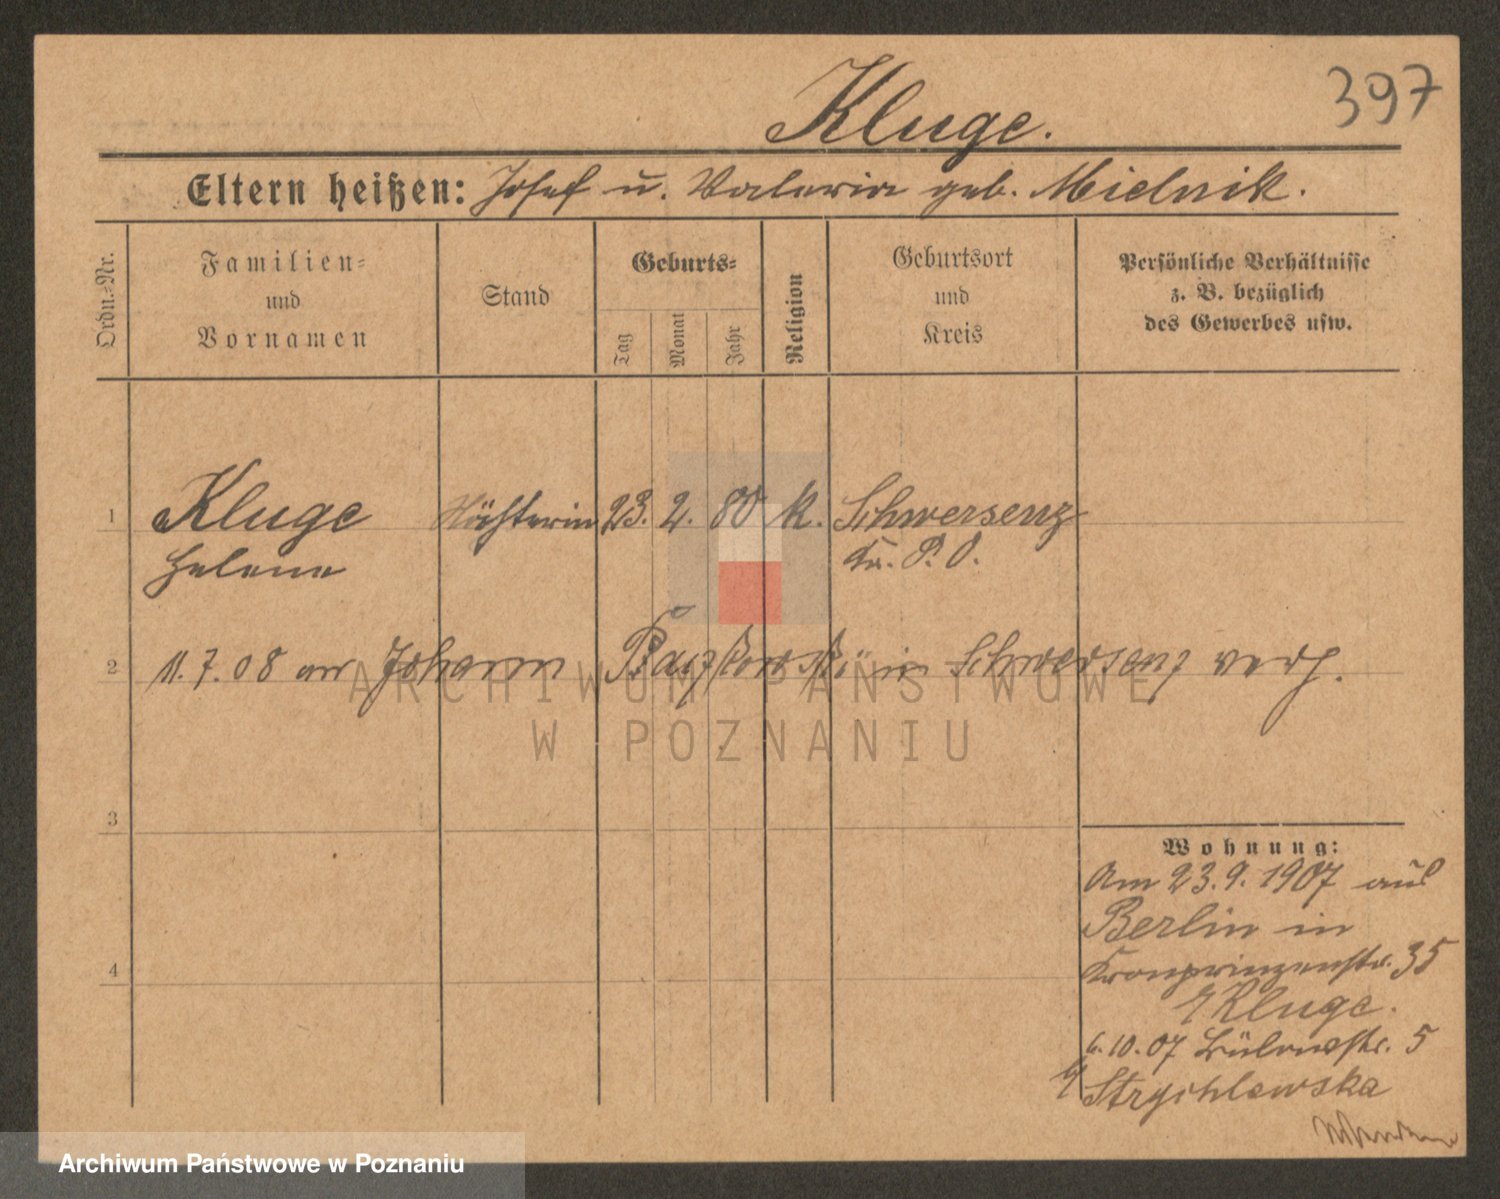 397
Kluge.
Eltern heißen: Josef u. Valeria geb. Mielnik.
Ordn.-Nr.
Familien-
und
Vornamen
Stand
Geburts-
Tag
Monat
Jahr
Religion
Geburtsort
und
Kreis
Persönliche Verhältnisse
z. B. bezüglich
des Gewerbes usw.
1 Kluge 23. 2. 80 k. Schwersenz
Helene Kr. P. O.
2 11.7.08 an Johann in Schwersenz verh.
3
4
Wohnung:
Am 23.9.1907 aus
Berlin in
Kronprinzenstr. 35
Kluge.
6.10.07 Bülowstr. 5
b/ Strychlewska
ARCHIWUM PAŃSTWOWE
W POZNANIU
Archiwum Państwowe w Poznaniu